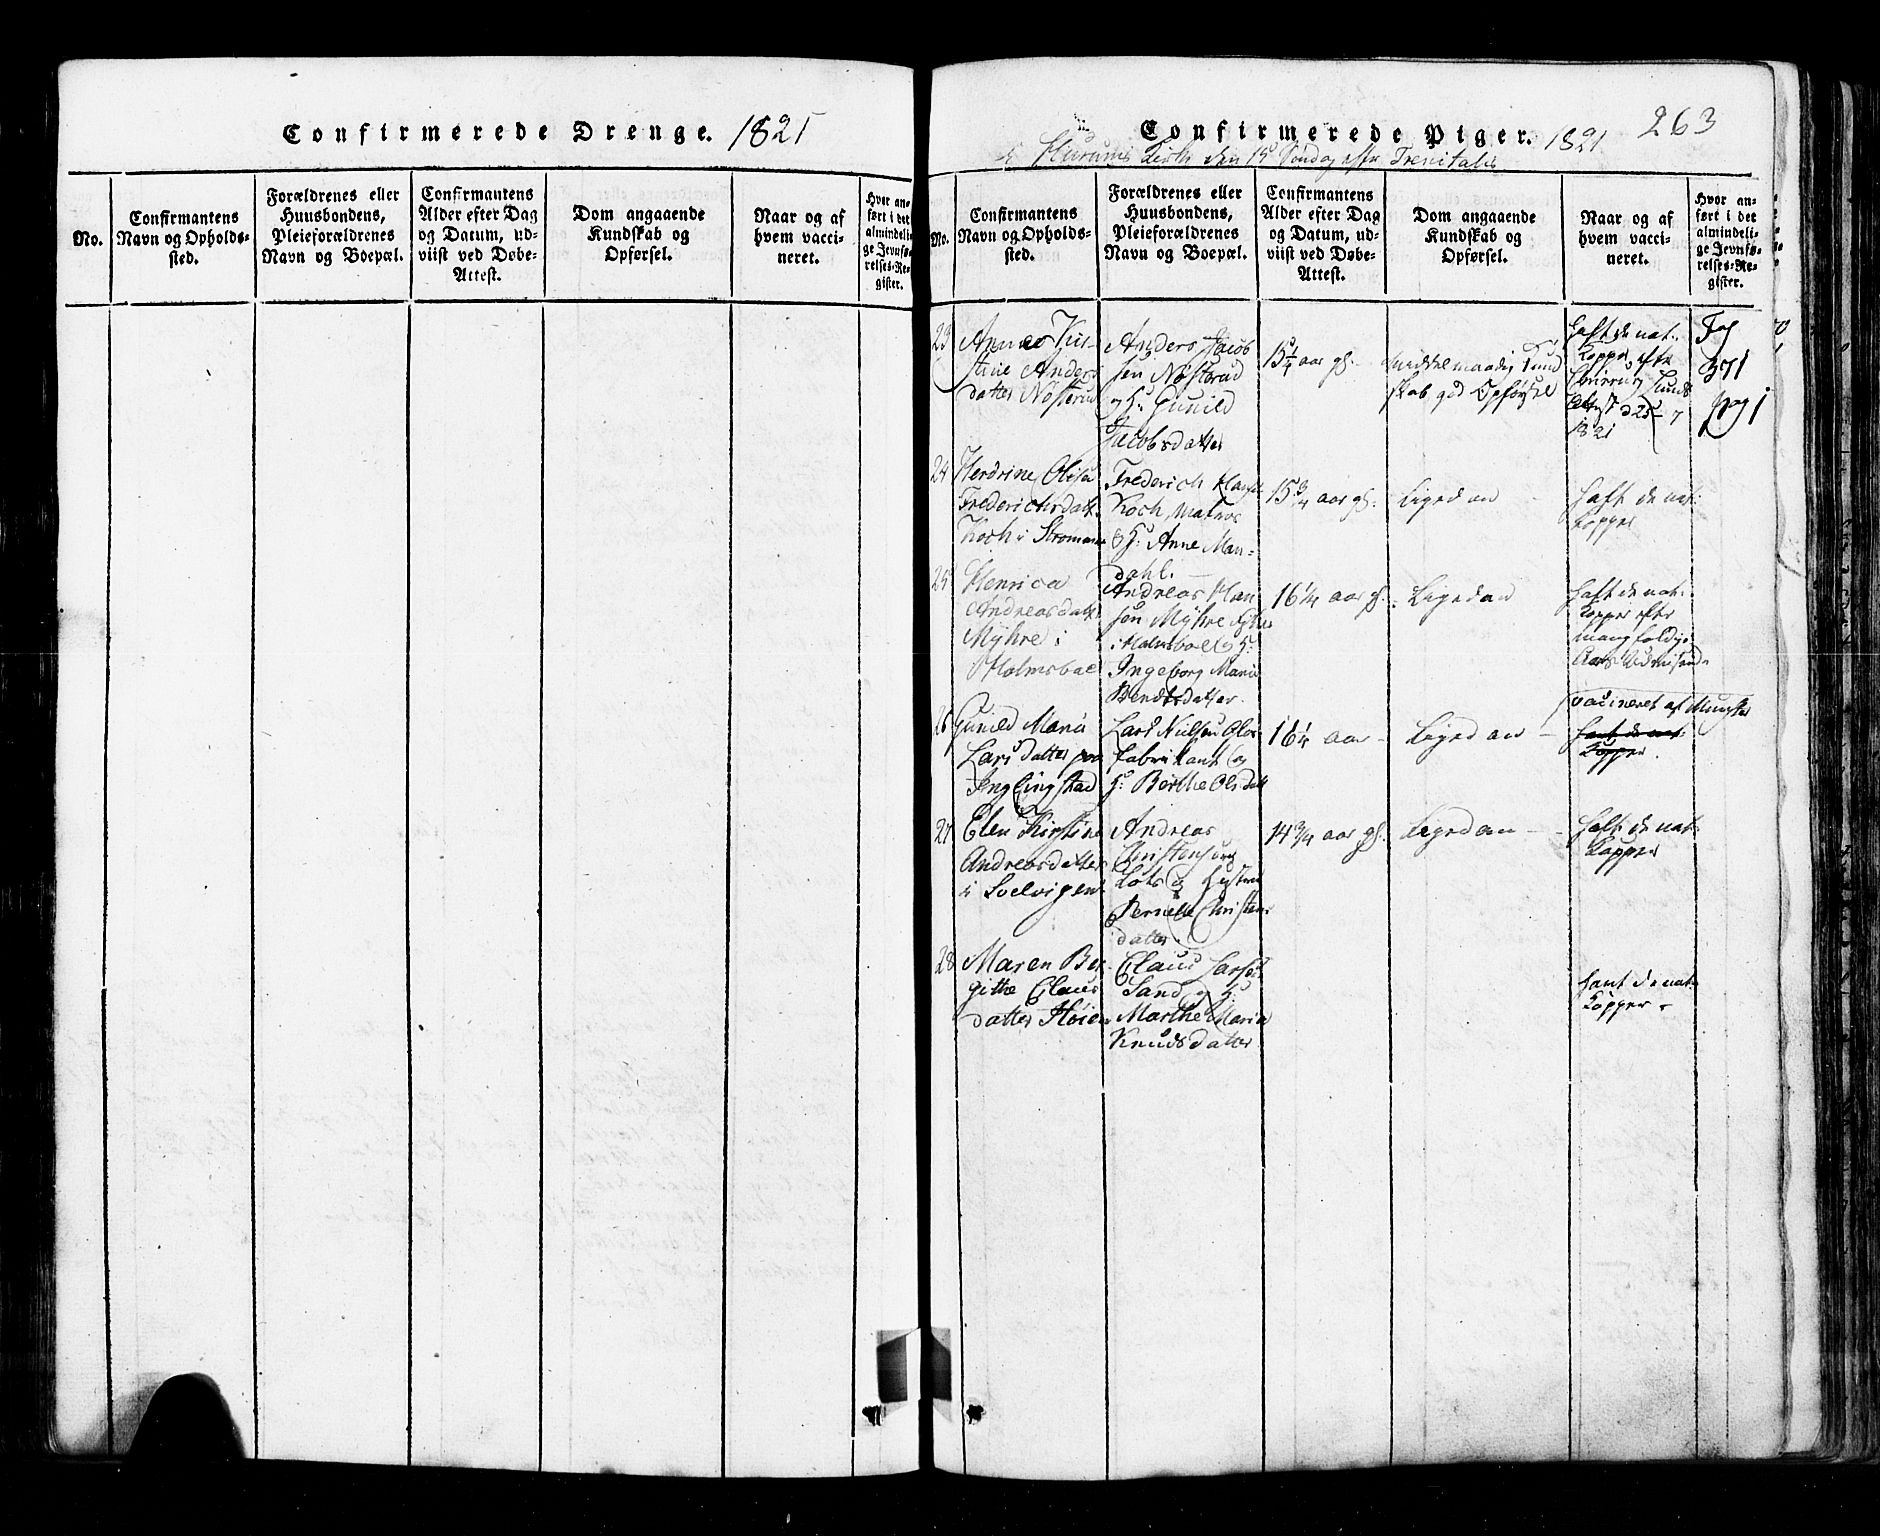 Confirmerede Drenge. 1821
No.
Confirmantens
Navn og Opholds-
sted.
Forældrenes eller
Huusbondens,
Pleieforældrenes
Navn og Boepæl.
Confirmantens
Alder efter Dag
og Datum, ud-
viist ved Døbe-
Attest.
Dom angaaende
Kundskab og
Opførsel.
Naar og af
hvem vacci-
neret.
Hvor an-
ført i det
almindeli-
ge Jevnfø-
relses-Re-
gister.
Confirmerede Piger. 1821
263
i Hurums Kirke den 15 Søndag efter Trenitatis
No.
Confirmantens
Navn og Opholds-
sted.
Forældrenes eller
Huusbondens,
Pleieforældrenes
Navn og Boepæl.
Confirmantens
Alder efter Dag
og Datum, ud-
viist ved Døbe-
Attest.
Dom angaaende
Kundskab og
Opførsel.
Naar og af
hvem vacci-
neret.
Hvor an-
ført i det
almindeli-
ge Jevnfø-
relses-Re-
gister.
23
Anne Kir-
stine Anders
datter Nøsterud
Anders Jacob
sen Nøsterud
og H: Gunild
Jacobsdatter
15 1/4 aar gl.
middelmaadig Kund
skab god Opførsel
haft de nat:
Kopper efter
1821
371
24
Olisa
Frederichsdatt.
Koch i Strømmen
Frederich
Koch Matros
og H: Anne Man-
dahl.
15 3/4 aar gl.
Ligedan
haft de nat:
kopper
25
Henrica
Andreasdatt.
Myhre i
Holmsboe
Andreas Han
sen Myhre
i Holmsboe og H:
Ingeborg Maria
Bendtsdatter.
16 1/4 aar gl.
Ligedan
haft de nat:
Kopper efter
mangfoldige
26
Gunild Maria
Larsdatter paa
Englingstad
Lars Nielsen
fabrikant og
H: Berthe Olsdatt
16 1/4 aar
Ligedan
vaccineret af
havt de nat:
Kopper
27
Elen Kirstine
Andreasdatter
i Svelvigen
Andreas
Christensen
Lots og Hustru
Pernelle Christens
datter.
14 3/4 aar gl.
Ligedan
haft de nat:
Kopper
28
Maren Ber
githe Claus
datter Høien
Claus Larsen
Sand og H:
Marthe Maria
Knudsdatter
havt de nat:
Kopper